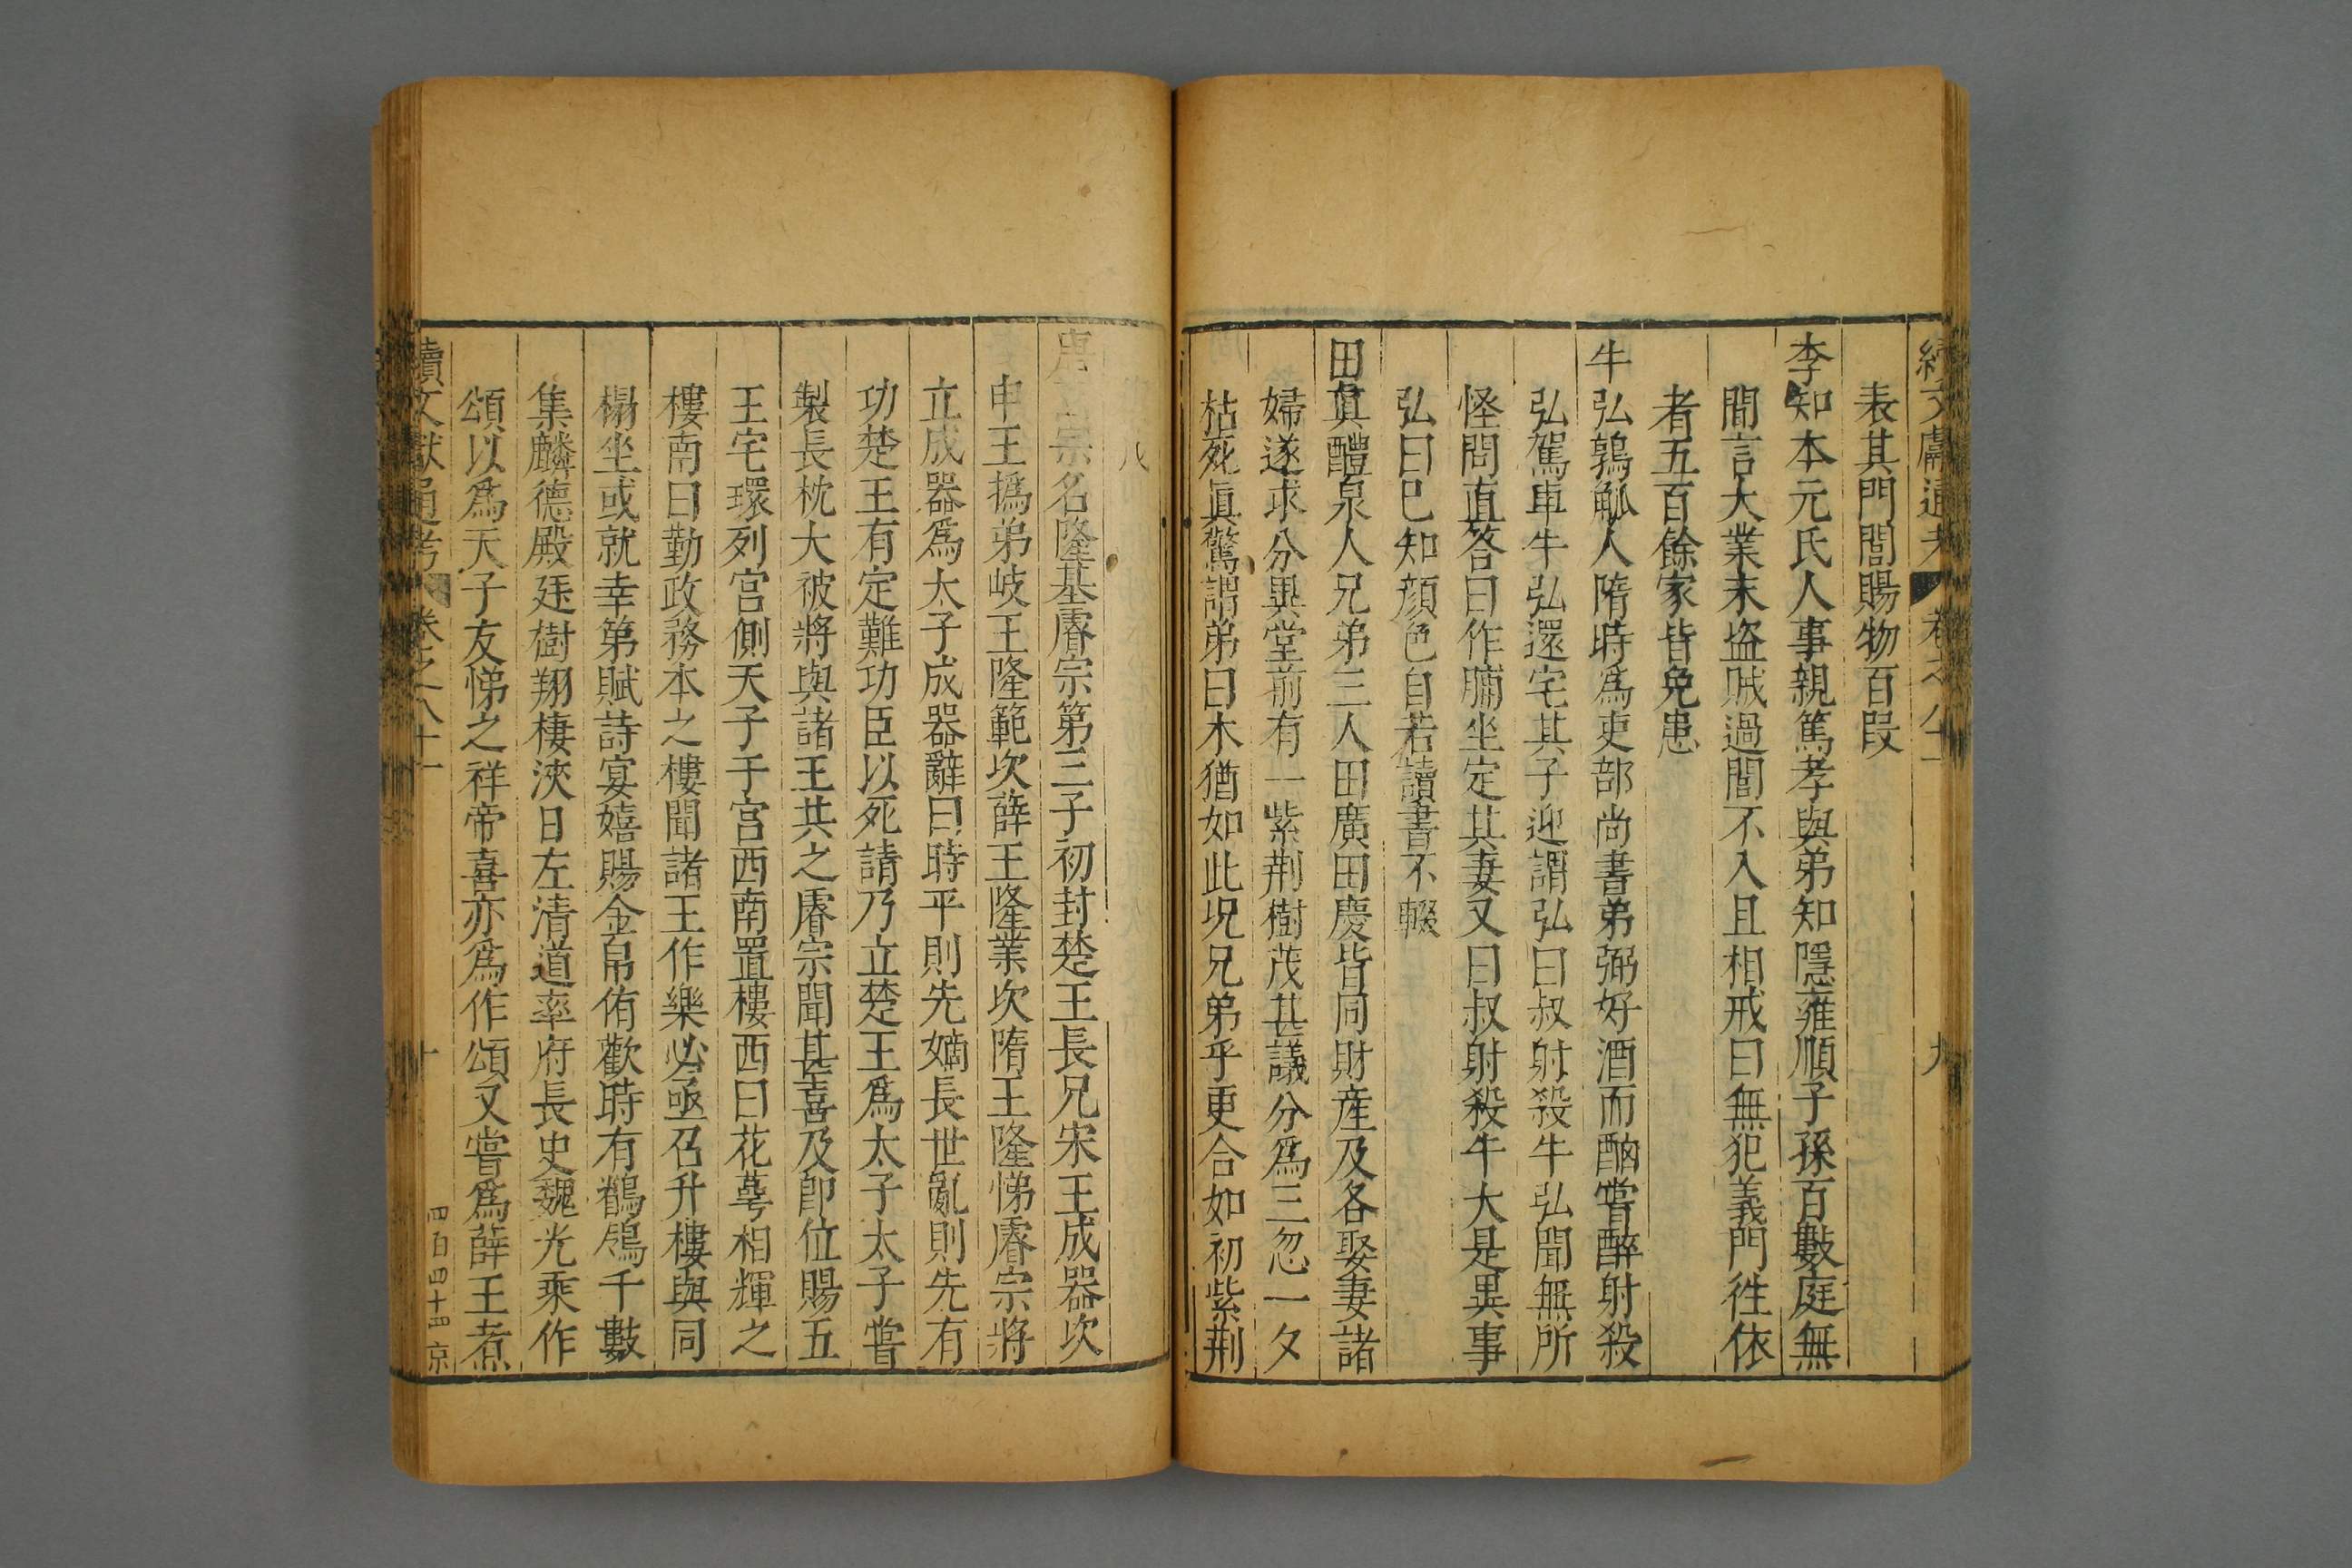 續文獻通考 卷之八十一 九
表其門閭賜物百段
李知本元氏人事親篤孝與弟知隱雍順子孫百數庭無
間言大業末盜賊過閭不入且相戒曰無犯義門徃依
者五百餘家皆免患
牛弘鶉觚人隋時爲吏部尚書弟弼好酒而酗嘗醉射殺
弘駕車牛弘還宅其子迎謂弘曰叔射殺牛弘聞無所
怪問直答曰作脯坐定其妻又曰叔射殺牛大是異事
弘曰已知顔色自若讀書不輟
田眞醴泉人兄弟三人田廣田慶皆同財産及各娶妻諸
婦遂求分異堂前有一紫荆樹茂甚議分爲三忽一夕
枯死眞驚謂弟曰木猶如此况兄弟乎更合如初紫荆
八
唐玄宗名隆基睿宗第三子初封楚王長兄宋王成器次
申王撝弟岐王隆範次薛王隆業次隋王隆悌睿宗將
立成器爲太子成器辭曰時平則先嫡長世亂則先有
功楚王有定難功臣以死請乃立楚王爲太子太子嘗
製長枕大被將與諸王共之睿宗聞甚喜及卽位賜五
王宅環列宫側天子于宫西南置樓西曰花萼相輝之
樓南曰勤政務本之樓聞諸王作樂必亟召升樓與同
榻坐或就幸第賦詩宴嬉賜金帛侑歡時有鶺鴒千數
集麟德殿廷樹翔棲浹日左清道率府長史魏光乘作
頌以爲天子友悌之祥帝喜亦爲作頌又嘗爲薛王煮
續文獻通考 卷之八十一 十 四百四十四 京